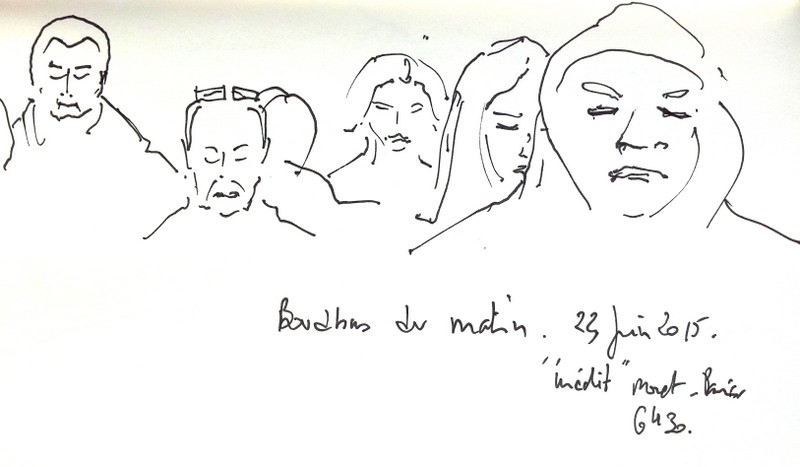 Bouddhas du matin. 23 Juin 2015.
"inédit" Moret - Paris
6h30.